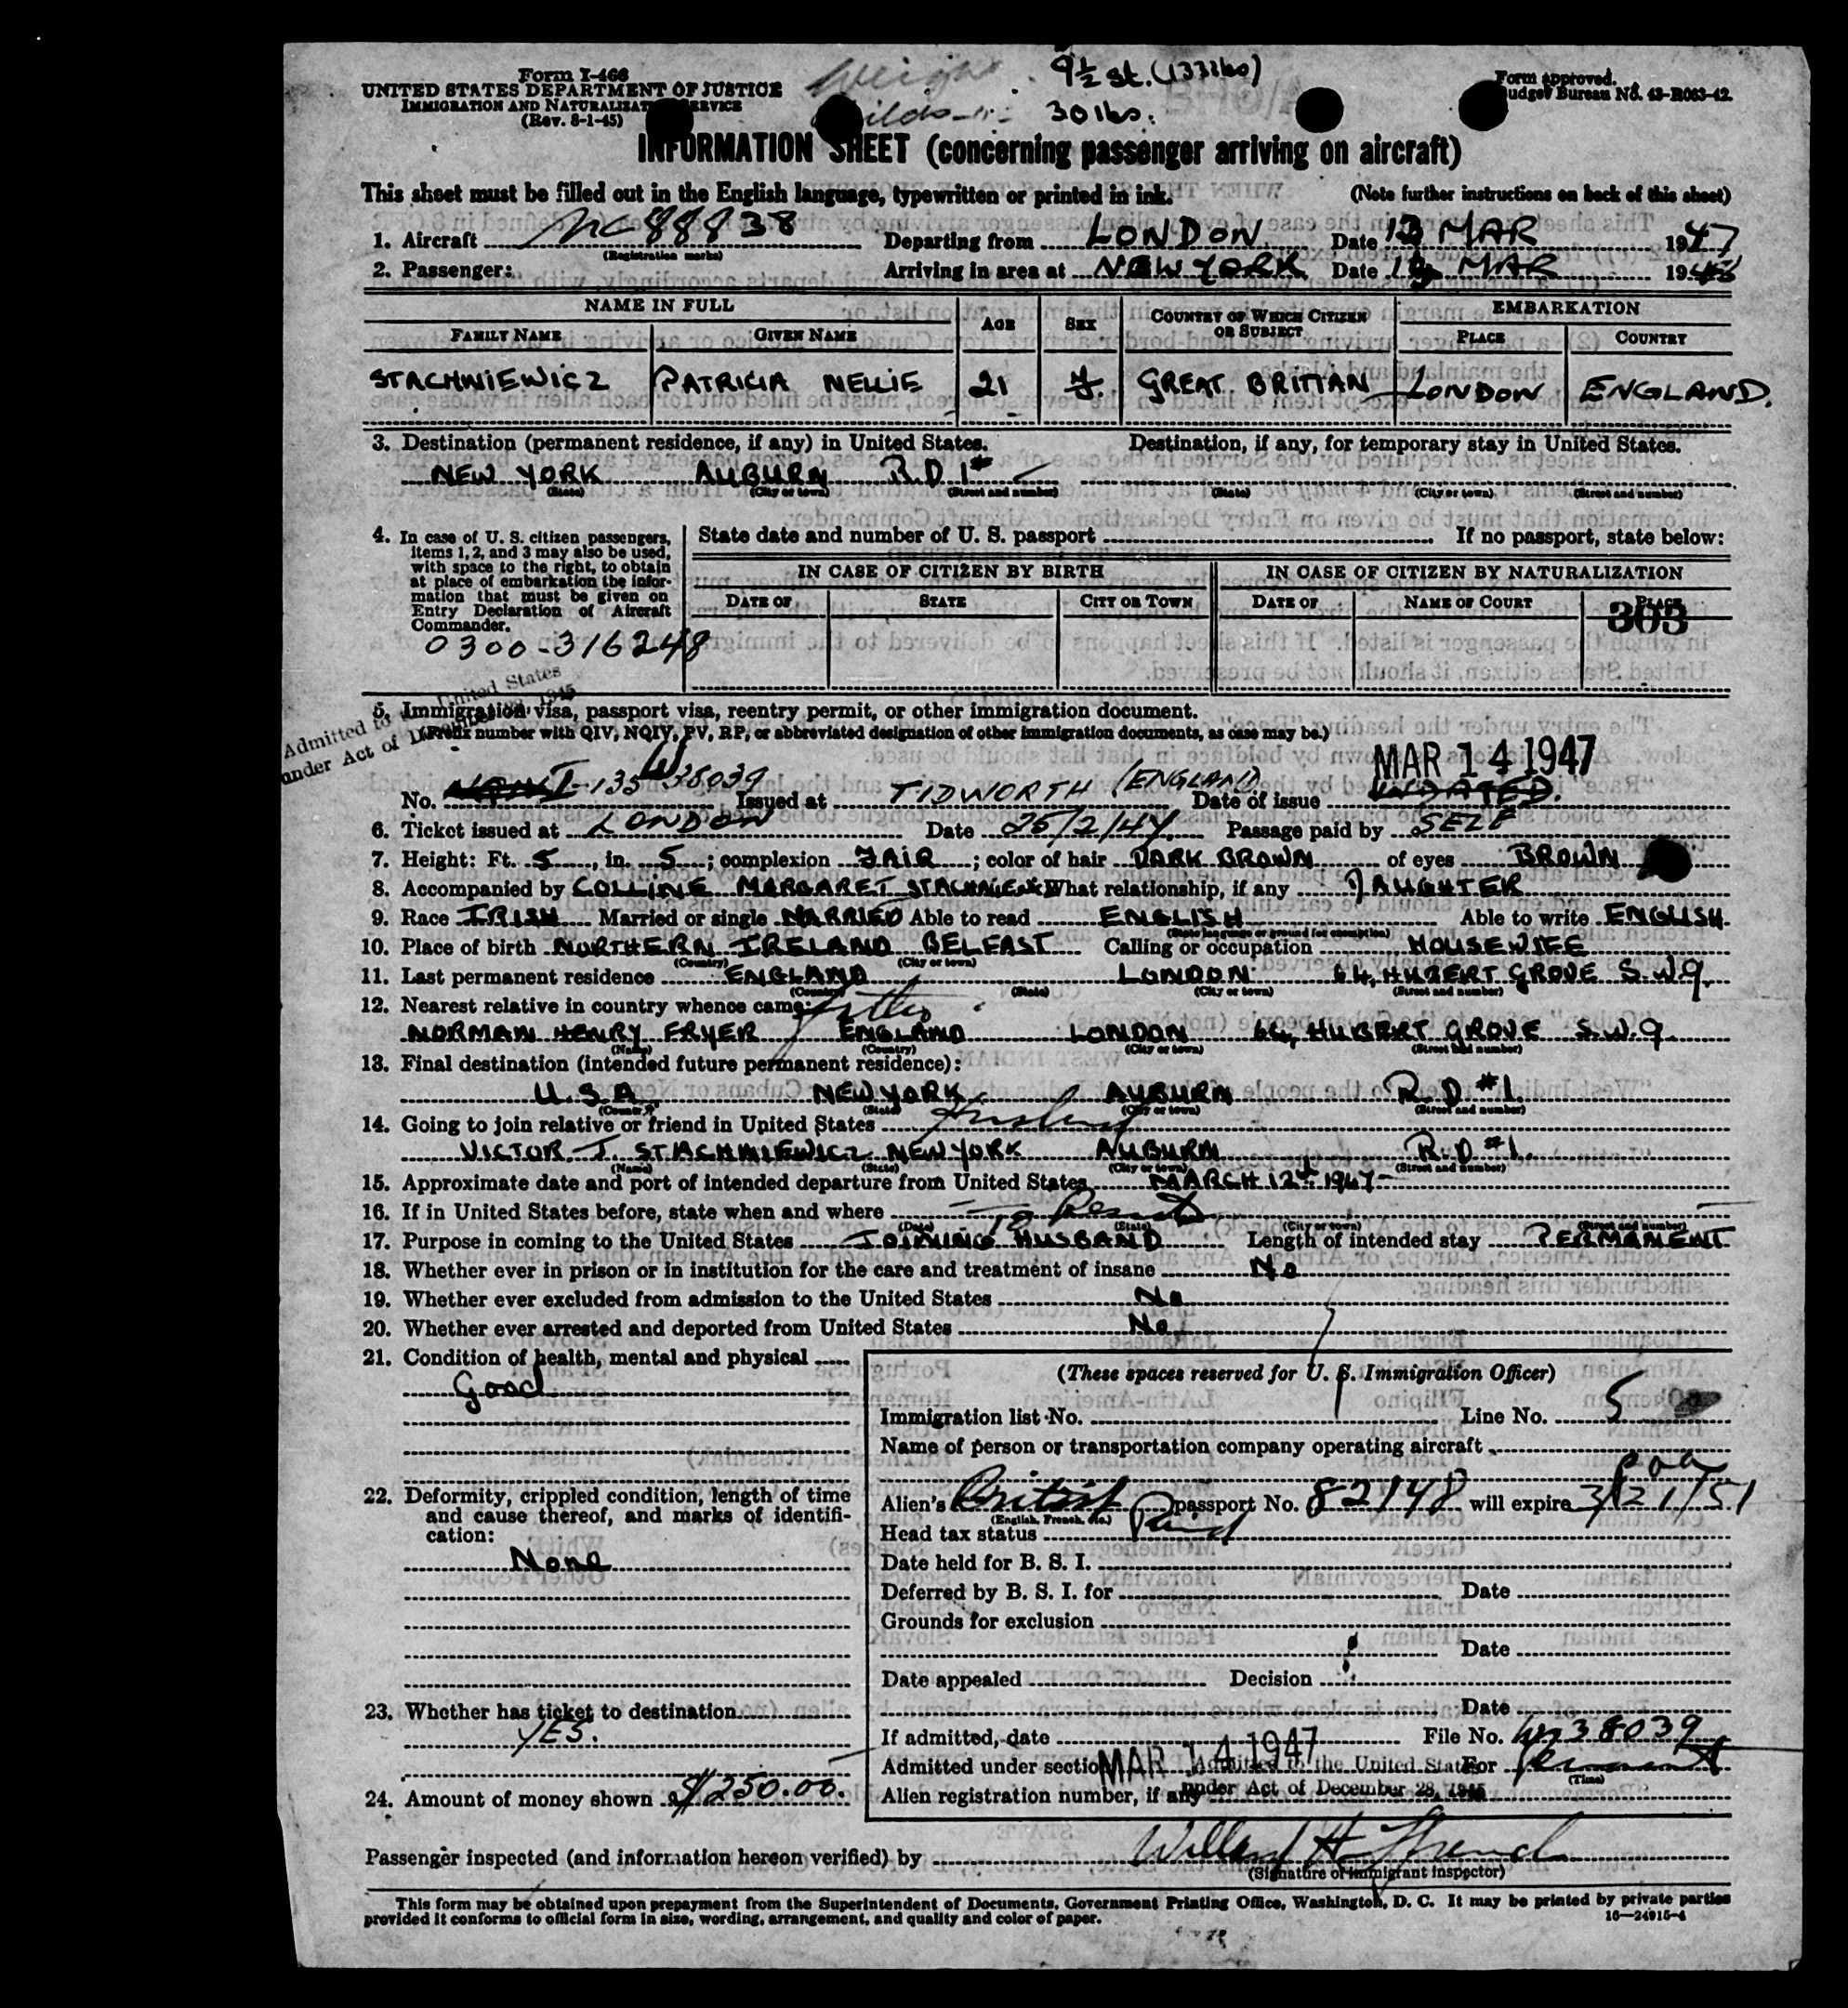 Form I-466
UNITED STATES DEPARTMENT OF JUSTICE
IMMIGRATION AND NATURALIZATION SERVICE
(Rev. 8-1-45)
9½ st. (133 lbs)
30 lbs.
Form approved.
Budget Bureau No. 43-R063-42.
INFORMATION SHEET (concerning passenger arriving on aircraft)
This sheet must be filled out in the English language, typewritten or printed in ink. (Note further instructions on back of this sheet)
1. Aircraft NC 88838 Departing from LONDON Date 13 MAR 1947
(Registration marks)
2. Passenger: Arriving in area at NEW YORK Date MAR 19
NAME IN FULL AGE SEX COUNTRY OF WHICH CITIZEN OR SUBJECT EMBARKATION
FAMILY NAME GIVEN NAME PLACE COUNTRY
STACHNIEWICZ PATRICIA NELLIE 21 F. GREAT BRITIAN LONDON ENGLAND.
3. Destination (permanent residence, if any) in United States. Destination, if any, for temporary stay in United States.
NEW YORK AUBURN R.D 1#
(State) (City or town) (Street and number) (State) (City or town) (Street and number)
4. In case of U. S. citizen passengers, items 1, 2, and 3 may also be used, with space to the right, to obtain at place of embarkation the information that must be given on Entry Declaration of Aircraft Commander.
State date and number of U. S. passport If no passport, state below:
IN CASE OF CITIZEN BY BIRTH IN CASE OF CITIZEN BY NATURALIZATION
DATE OF STATE CITY OR TOWN DATE OF NAME OF COURT PLACE
303
0300-316248
Admitted to the United States
under Act of December 28, 1945
5. Immigration visa, passport visa, reentry permit, or other immigration document.
(Prefix number with QIV, NQIV, PV, RP, or abbreviated designation of other immigration documents, as case may be.)
MAR 14 1947
No. I-135 38039 Issued at TIDWORTH (ENGLAND) Date of issue UNDATED.
6. Ticket issued at LONDON Date 25/2/47. Passage paid by SELF
7. Height: Ft. 5, in. 5; complexion FAIR; color of hair DARK BROWN of eyes BROWN
8. Accompanied by COLLINE MARGARET STACHNIEWICZ What relationship, if any DAUGHTER
9. Race IRISH Married or single MARRIED Able to read ENGLISH Able to write ENGLISH
(State language or ground for exemption)
10. Place of birth NORTHERN IRELAND BELFAST Calling or occupation HOUSEWIFE
(Country) (City or town)
11. Last permanent residence ENGLAND LONDON 64, HUBERT GROVE S.W.9.
(Country) (State) (City or town) (Street and number)
12. Nearest relative in country whence came:
NORMAN HENRY FRYER ENGLAND LONDON 64, HUBERT GROVE S.W.9.
(Name) (Country) (City or town) (Street and number)
13. Final destination (intended future permanent residence):
U.S.A NEW YORK AUBURN R.D #1.
(Country) (State) (City or town) (Street and number)
14. Going to join relative or friend in United States Husband
VICTOR. J. STACHNIEWICZ NEW YORK AUBURN R.D #1.
(Name) (State) (City or town) (Street and number)
15. Approximate date and port of intended departure from United States MARCH 12th 1947-
16. If in United States before, state when and where
(Date) (State) (City or town) (Street and number)
17. Purpose in coming to the United States JOINING HUSBAND Length of intended stay PERMANENT
18. Whether ever in prison or in institution for the care and treatment of insane No
19. Whether ever excluded from admission to the United States No
20. Whether ever arrested and deported from United States No
21. Condition of health, mental and physical
Good
22. Deformity, crippled condition, length of time and cause thereof, and marks of identification:
None
23. Whether has ticket to destination
YES.
24. Amount of money shown $250.00.
(These spaces reserved for U. S. Immigration Officer)
Immigration list No. Line No. 5
Name of person or transportation company operating aircraft
paa
Alien's British passport No. 82148 will expire 3/21/51
(English, French, etc.)
Head tax status Paid
Date held for B. S. I.
Deferred by B. S. I. for Date
Grounds for exclusion
Date
Date appealed Decision
Date
If admitted, date File No. 38039
MAR 14 1947
Admitted under section Admitted to the United States For Permanent
(Time)
Alien registration number, if any under Act of December 28, 1945
Passenger inspected (and information hereon verified) by Willard H.
(Signature of immigrant inspector)
This form may be obtained upon prepayment from the Superintendent of Documents, Government Printing Office, Washington, D. C. It may be printed by private parties
provided it conforms to official form in size, wording, arrangement, and quality and color of paper. 16—24915-4